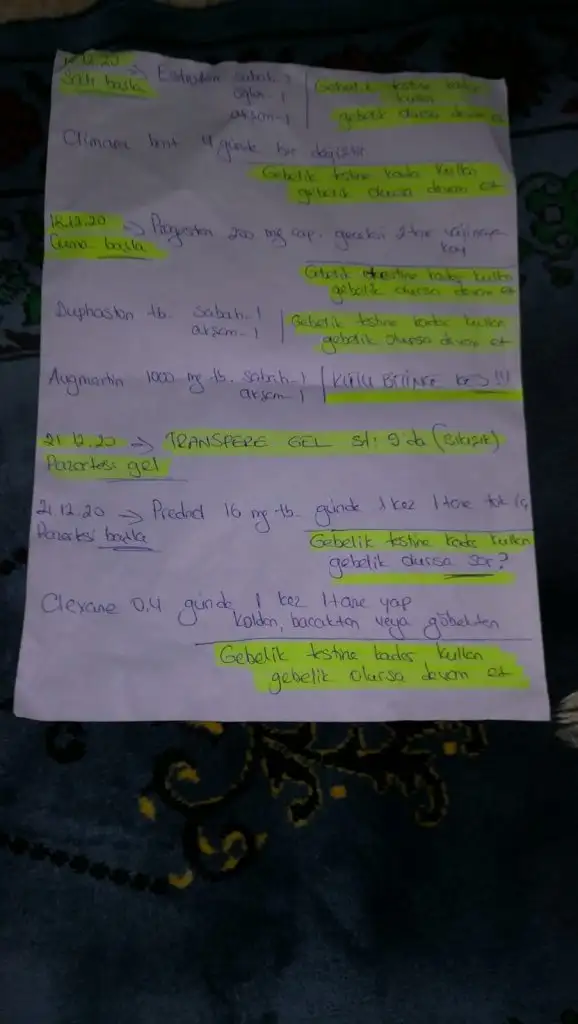 12.20 → Estrofem sabah-
Salı başla
öğlen-1
akşam-1
Gebelik testine kadar
kullan
gebelik olursa devam et
Climara bant 4 günde bir değiştir
Gebelik testine kadar kullan
gebelik olursa devam et
18.12.20 → Progestan 200 mg cap. geceleri 2 tane vajinaya
Cuma başla
koy
Gebelik testine kadar kullan
gebelik olursa devam et
Duphaston tb. sabah-1
akşam-1
Gebelik testine kadar kullan
gebelik olursa devam et
Augmentin 1000 mg tb. sabah-1
akşam-1
KUTU BİTİNCE kes !!!
21.12.20 → TRANSFERE GEL st: 9'da
Pazartesi gel
21.12.20 → Prednol 16 mg tb. günde 1 kez 1 tane tok iç
Pazartesi başla
Gebelik testine kadar kullan
gebelik olursa sor?
Clexane 0,4 günde 1 kez 1 tane yap
koldan, bacaktan veya göbekten
Gebelik testine kadar kullan
gebelik olursa devam et